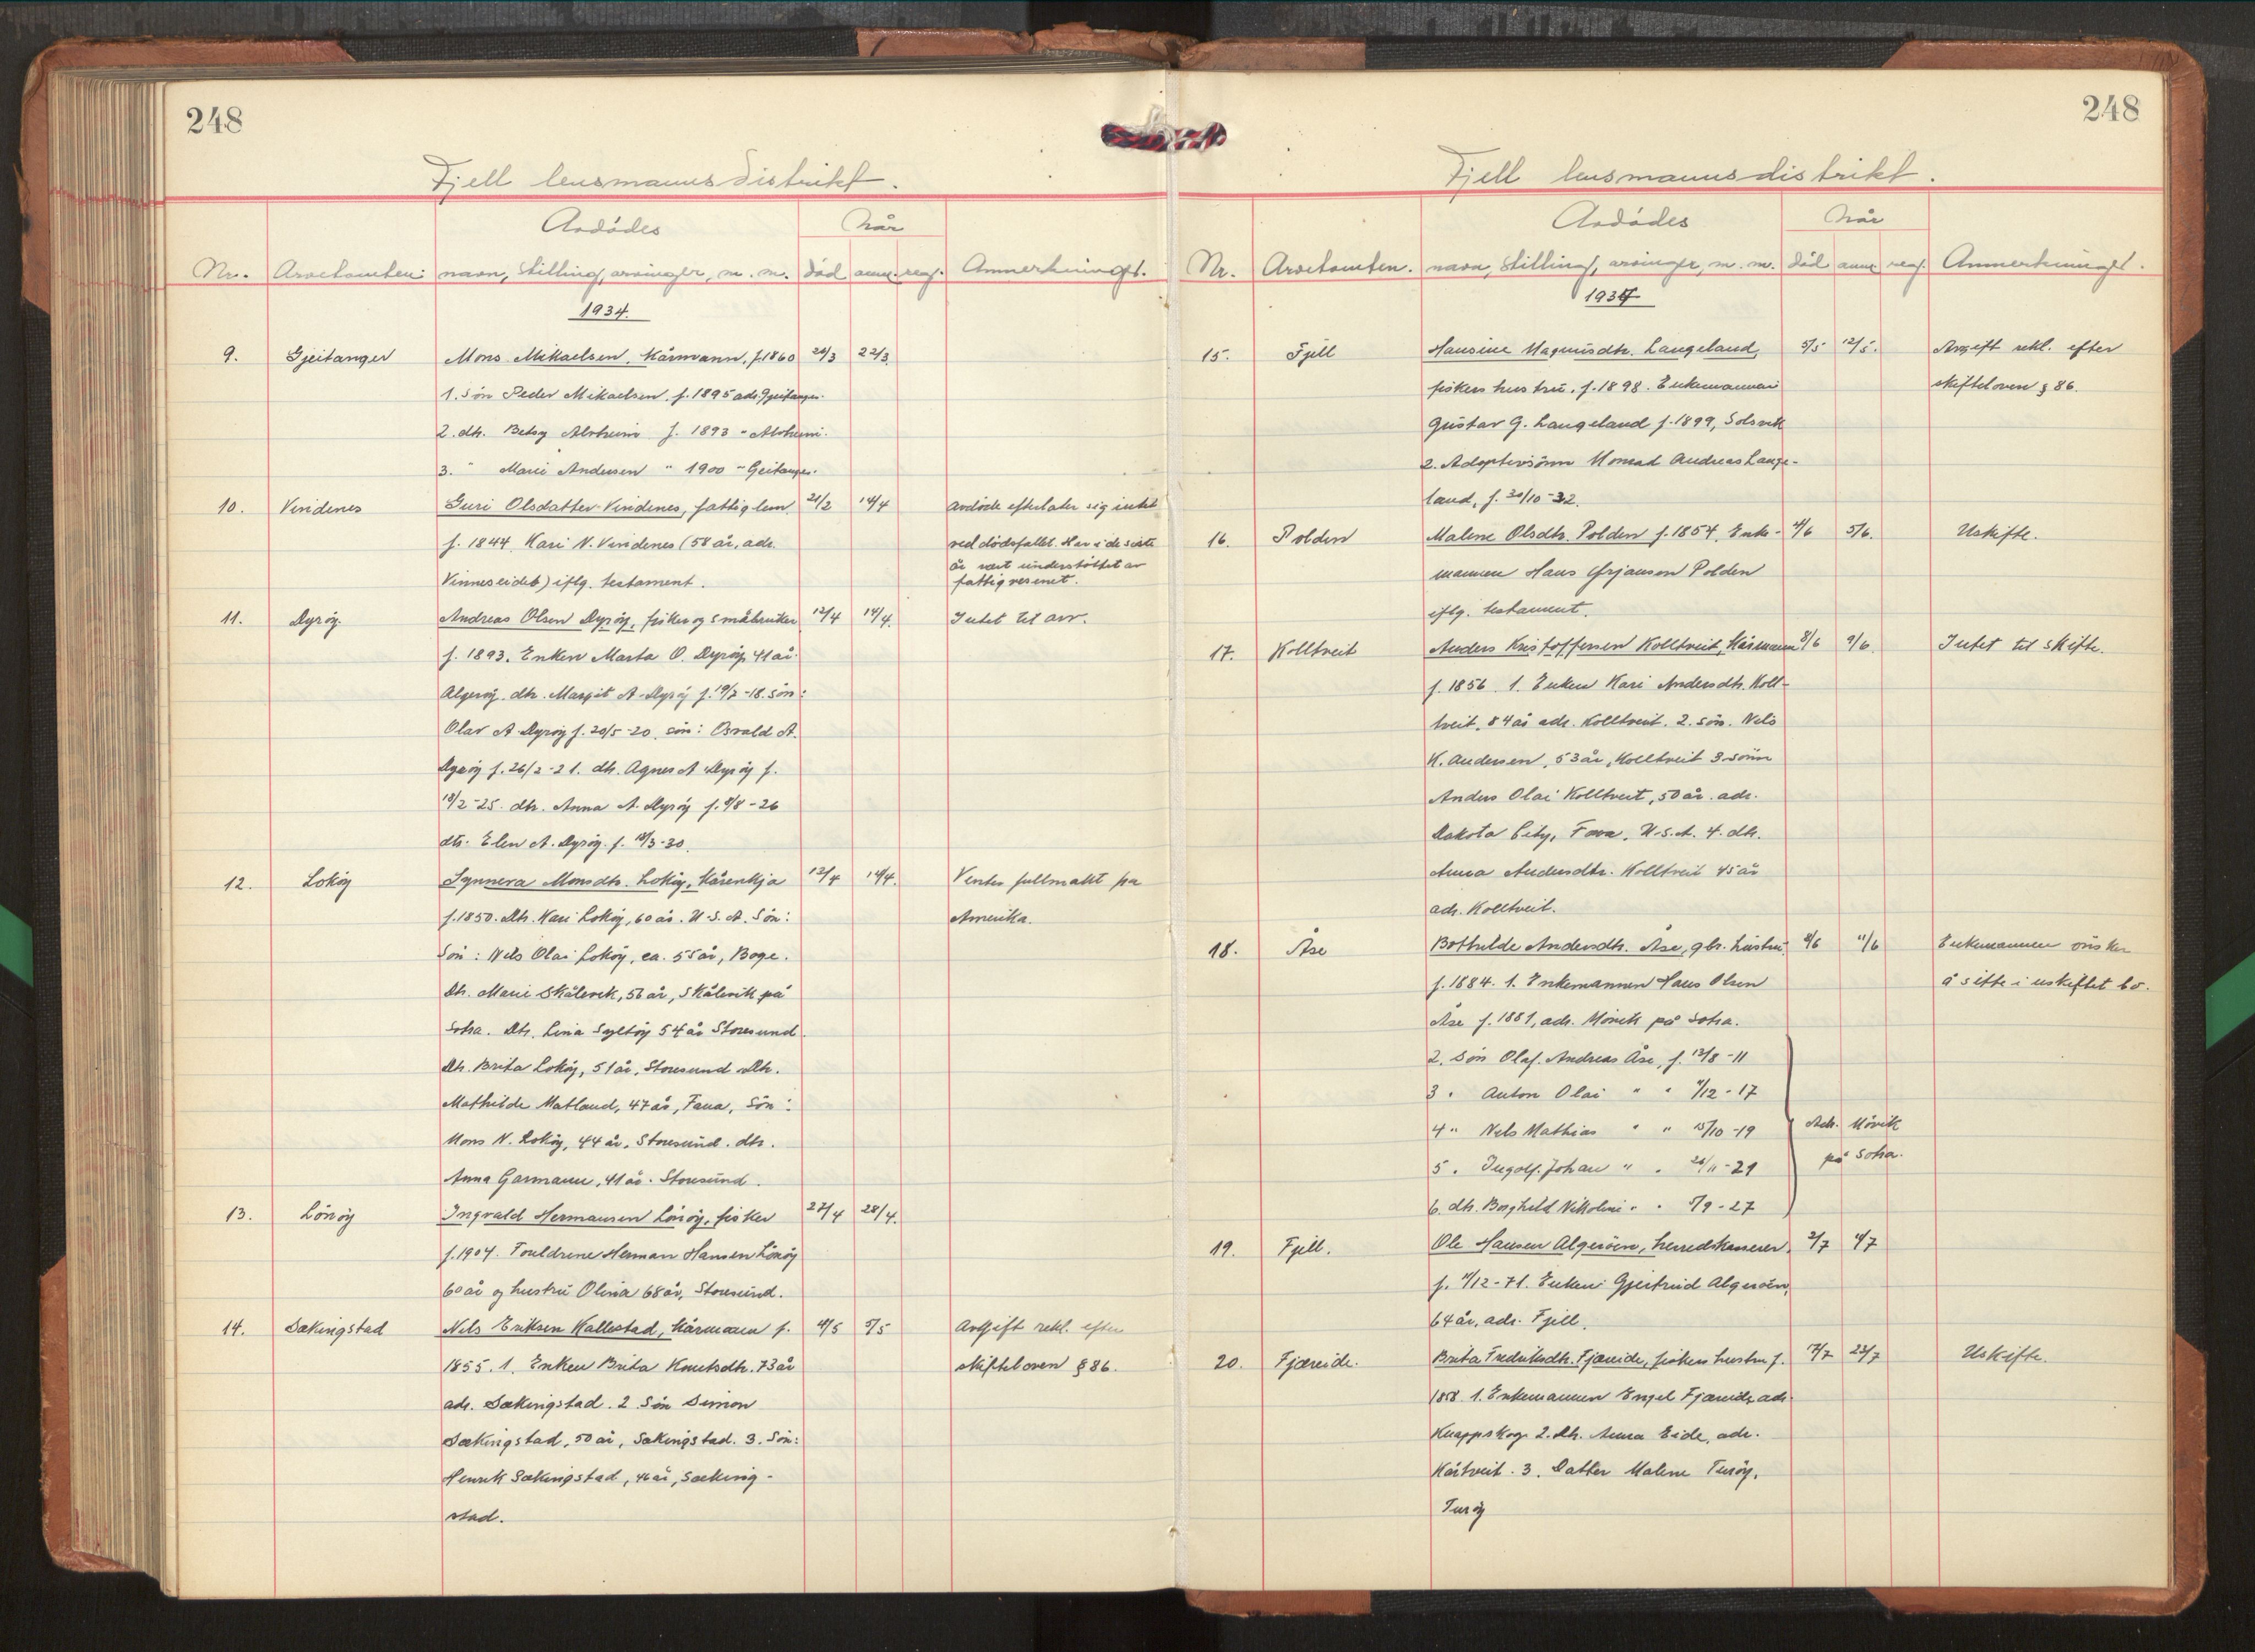 248
Fjell lensmannsdistrikt.
Avdödes
Når
Nr. Arvetomten: navn, stilling, arvinger, m. m. död anm. reg. Anmerkninger.
1934.
9. Gjeitanger Mons Mikaelsen, kårmann, f. 1860 20/3 22/3.
1. Sön Peder Mikaelsen, f. 1895 adr. Gjeitanger.
2. dtr. Betsy f. 1893 "
3. " Marie Andersen " 1900 " Geitanger.
10. Vindenes Guri Olsdatter Vindenes, fattiglem, 21/2 14/4 avdöde efterlater sig intet
f. 1844. Kari N. Vindenes (58 år, adr. ved dödsfallet. Har i de siste
Vinneseidet) iflg. testament. år vært understöttet av
fattigvesenet.
11. Dyröy. Andreas Olsen Dyröy, fisker og småbruker 12/4 14/4. Intet til arv.
f. 1893. Enken Marta O. Dyröy, 41 år.
Algeröy. dtr. Margit A. Dyröy f. 19/7-18. sön:
Olav A. Dyröy f. 20/5-20. sön: Osvald A.
Dyröy f. 26/2-21. dtr. Agnes A Dyröy f.
18/2-25. dtr. Anna A. Dyröy f. 9/8-26
dtr. Elen A. Dyröy. f. 18/3-30.
12. Loköy Synnera Monsdtr. Loköy, kårenkja 12/4 14/4. Ventes fullmakt fra
f. 1850. Dtr. Kari Loköy, 60 år. U.S.A. Sön: Amerika.
Sön: Nels Olai Loköy, ca. 55 år, Boge.
Dtr. Marie Skålevik, 56 år, Skålevik på
Sotra. Dtr. Lina Syltöy 54 år Storesund.
Dtr. Brita Loköy, 51 år, Storesund Dtr.
Mathilde Matland, 47 år, Fana, Sön:
Mons N. Loköy, 44 år, Storesund. dtr.
Anna Garmann, 41 år. Storesund.
13. Lönöy Ingvald Hermansen Lönöy, fisker 27/4 28/4.
f. 1904. Foreldrene Herman Hansen Lönöy
60 år og hustru Olina 68 år, Storesund.
14. Sekingstad Nils Eriksen Kallestad, kårmann f. 4/5 5/5 Avgift rekl. efter
1855. 1. Enken Brita Knutsdtr. 73 år skifteloven § 86.
adr. Sekingstad. 2. Sön Simon
Sekingstad, 50 år, Sekingstad. 3. Sön:
Henrik Sekingstad, 46 år, Seking-
stad.
248
Fjell lensmannsdistrikt.
Avdödes
Når
Nr. Arvetomten. navn, stilling, arvinger, m. m. död anm reg. Anmerkninger.
1934
15. Fjell Hansine Magnusdtr. Langeland, 5/5 12/5. Avgift rekl. efter
fiskers hustru, f. 1898. Enkemannen skifteloven § 86.
Gustav G. Langeland f. 1899, Solsvik
2. Adoptivsönn Konrad Andreas Lange-
land, f. 30/10-32.
16. Polden Malene Olsdtr. Polden f. 1854. Enke- 4/6 5/6. Uskifte.
mannen Hans Örjansen Polden
iflg. testament.
17. Kolltveit Anders Kristoffersen Kolltveit, Kårmann 8/6 9/6. Intet til skifte.
f. 1856. 1. Enken Kari Andersdtr. Koll-
tveit, 84 år adr. Kolltveit. 2. sön. Nils
K. Andersen, 53 år, Kolltveit 3 sönn
Anders Olai Kolltveit, 50 år. adr.
Dakota City, U.S.A. 4. dtr.
Anna Andersdtr. Kolltveit 45 år
adr. Kolltveit.
18. Åse Bothilde Andersdtr. Åse, gbr. hustru, 8/6 11/6 Enkemannen önsker
f. 1884. 1. Enkemannen Hans Olsen å sitte i uskiftet bo.
Åse f. 1881, adr. Mövik på Sotra.
2. Sön Olaf Andreas Åse, f. 12/8-11
3 " Anton Olai " " 4/12-17
4 " Nels Mathias " " 15/10-19 Adr. Mövik
5 " Ingolf Johan " " 26/11-21 på Sotra.
6. dtr. Borghild Nikoline " " 5/9-27
19. Fjell. Ole Hansen Algeröen, herredskasserer, 2/7 4/7
f. 4/12-71. Enken: Gjertrud Algeröen,
64 år, adr. Fjell.
20. Fjæreide. Brita Fredriksdtr. Fjæreide, fiskers hustru f. 17/7 23/7 Uskifte.
1858. 1. Enkemannen Engel Fjæreide, adr.
Knappskog. 2. dtr. Anna Eide, adr.
Kårtveit. 3. Datter Malene Turöy,
Turöy